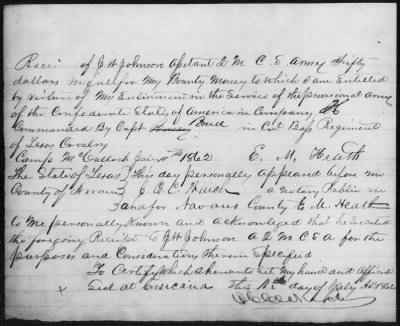 Recid of J H Johnson A 2 M C S Army Fifty
dollars in full for My Bounty Money to which I am Entitled
by virtue of My Enlistment in the Service of the provisional army
of the Confederate States of America in Company K
Commanded By Capt in Col Bass Regiment
of Texas Cavalry
Camp McCulloch July 11th 1862 E. M. Heath
The State of Texas This day personally appeared before me
County of Navarro J a notary Public in
and for Navarro County E. M. Heath
to Me personally Known and acknowledged that he executed
the foregoing Receipt to J H Johnson A 2 M C S A for the
purposes and Consideration therein Specified
To Certify which I hereunto set My hand and official
Seal at Corsicana this day of July AD 1862